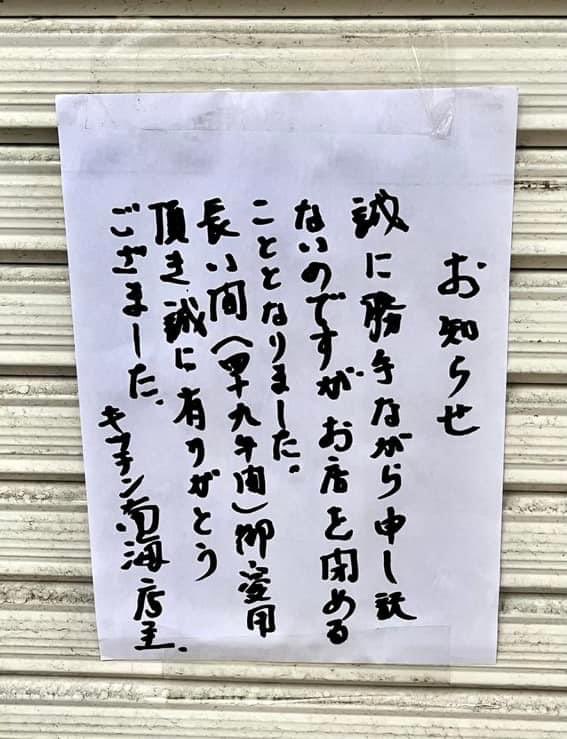 お知らせ
誠に勝手ながら申し訳
ないのですが、お店を閉める
こととなりました。
長い間(四十九年間)御愛用
頂き誠に有りがとう
ございました。
キッチン南海店主.